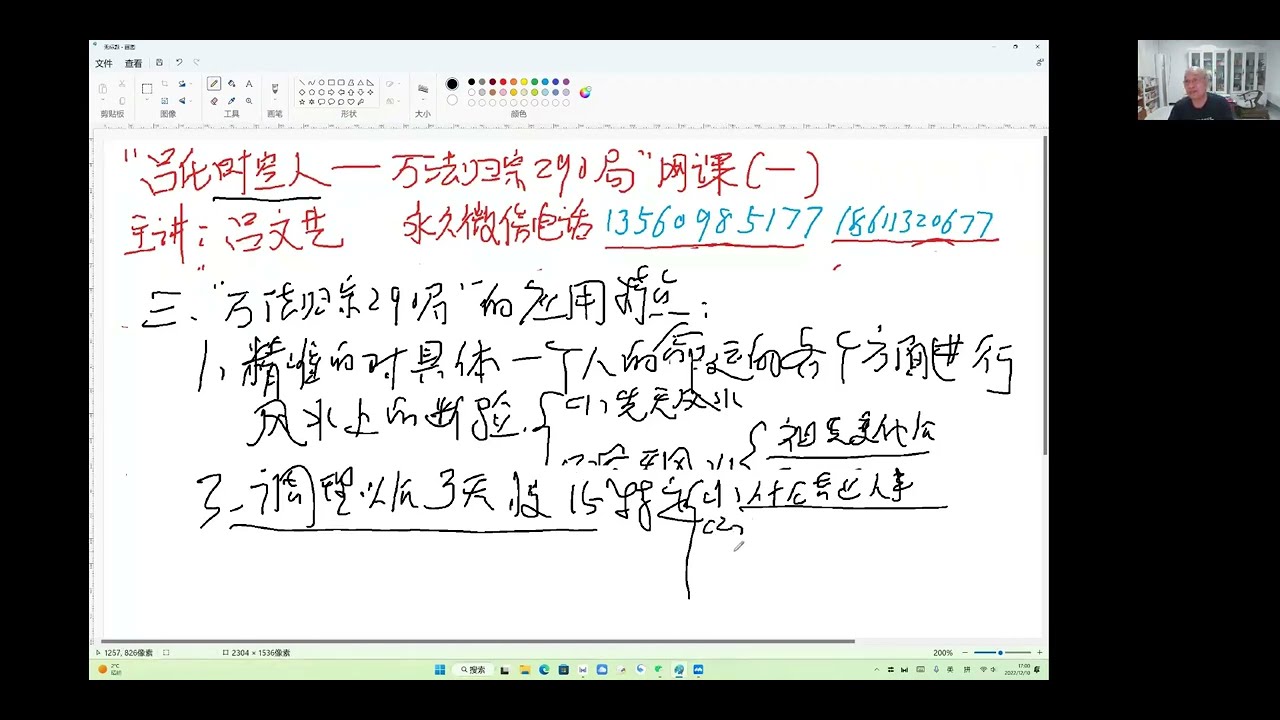 无标题 - 画图
文件 查看
剪贴板 图像 工具 画笔 形状 大小 颜色
"吕氏时空人一万法归宗290局"网课(一)
主讲：吕文艺 永久微信电话 13560985177 18611320677
三、"万法归宗290局"的应用特点：
1、精准的对具体一个人的命运的各个方面进行
风水上的断验
(1)先天风水
后天风水 祖先变化
3、调理以后3天
(1)
(2)
1257, 826像素 2304 × 1536像素 200%
2°C 搜索 英 拼 17:00
2022/12/18